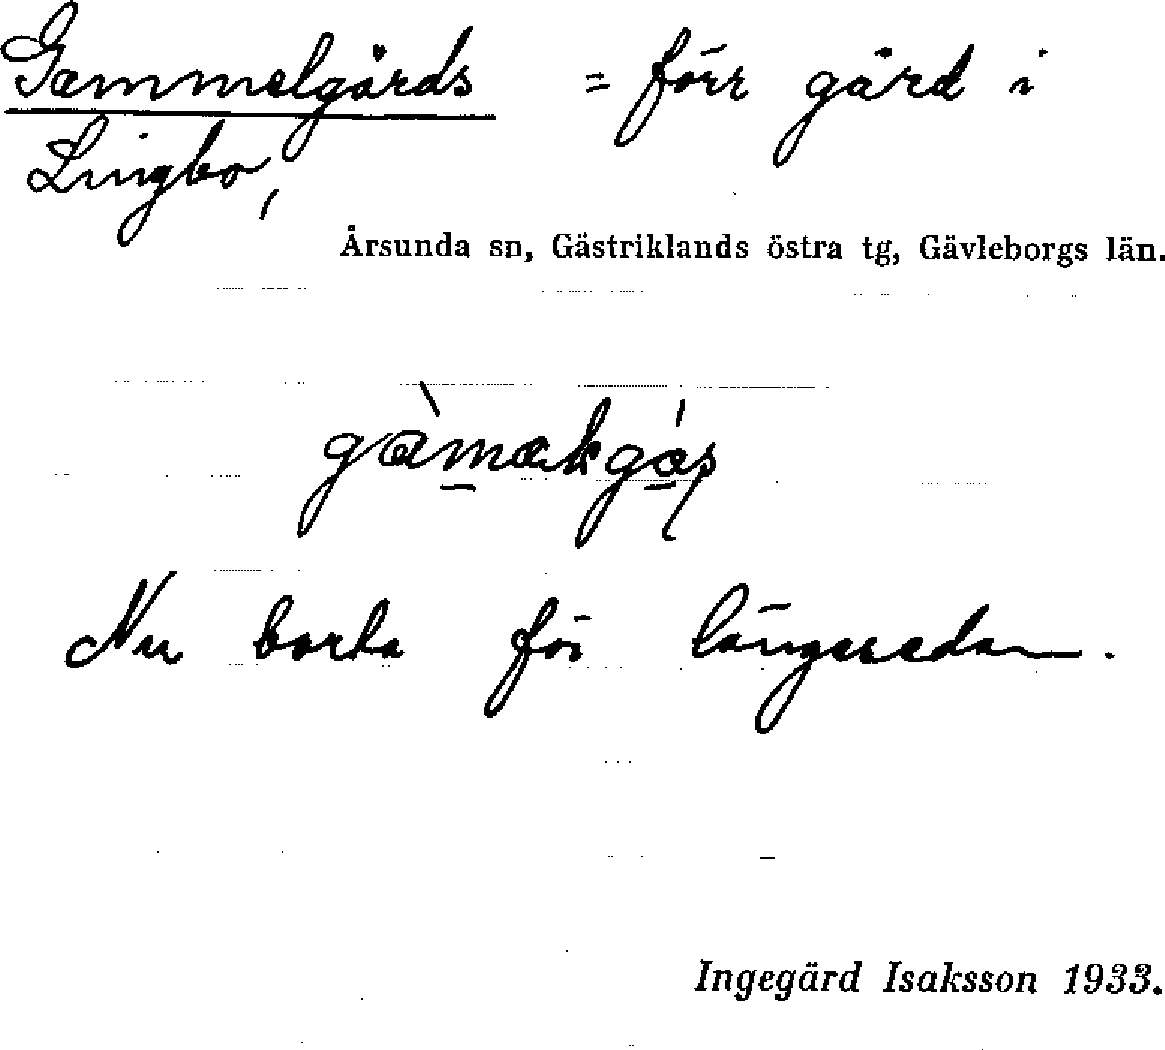 Gammelgårds = förr gård i
Lingbo,
Årsunda sn, Gästriklands östra tg, Gävleborgs län.
Nu borta för länge sedan.
Ingegärd Isaksson 1933.